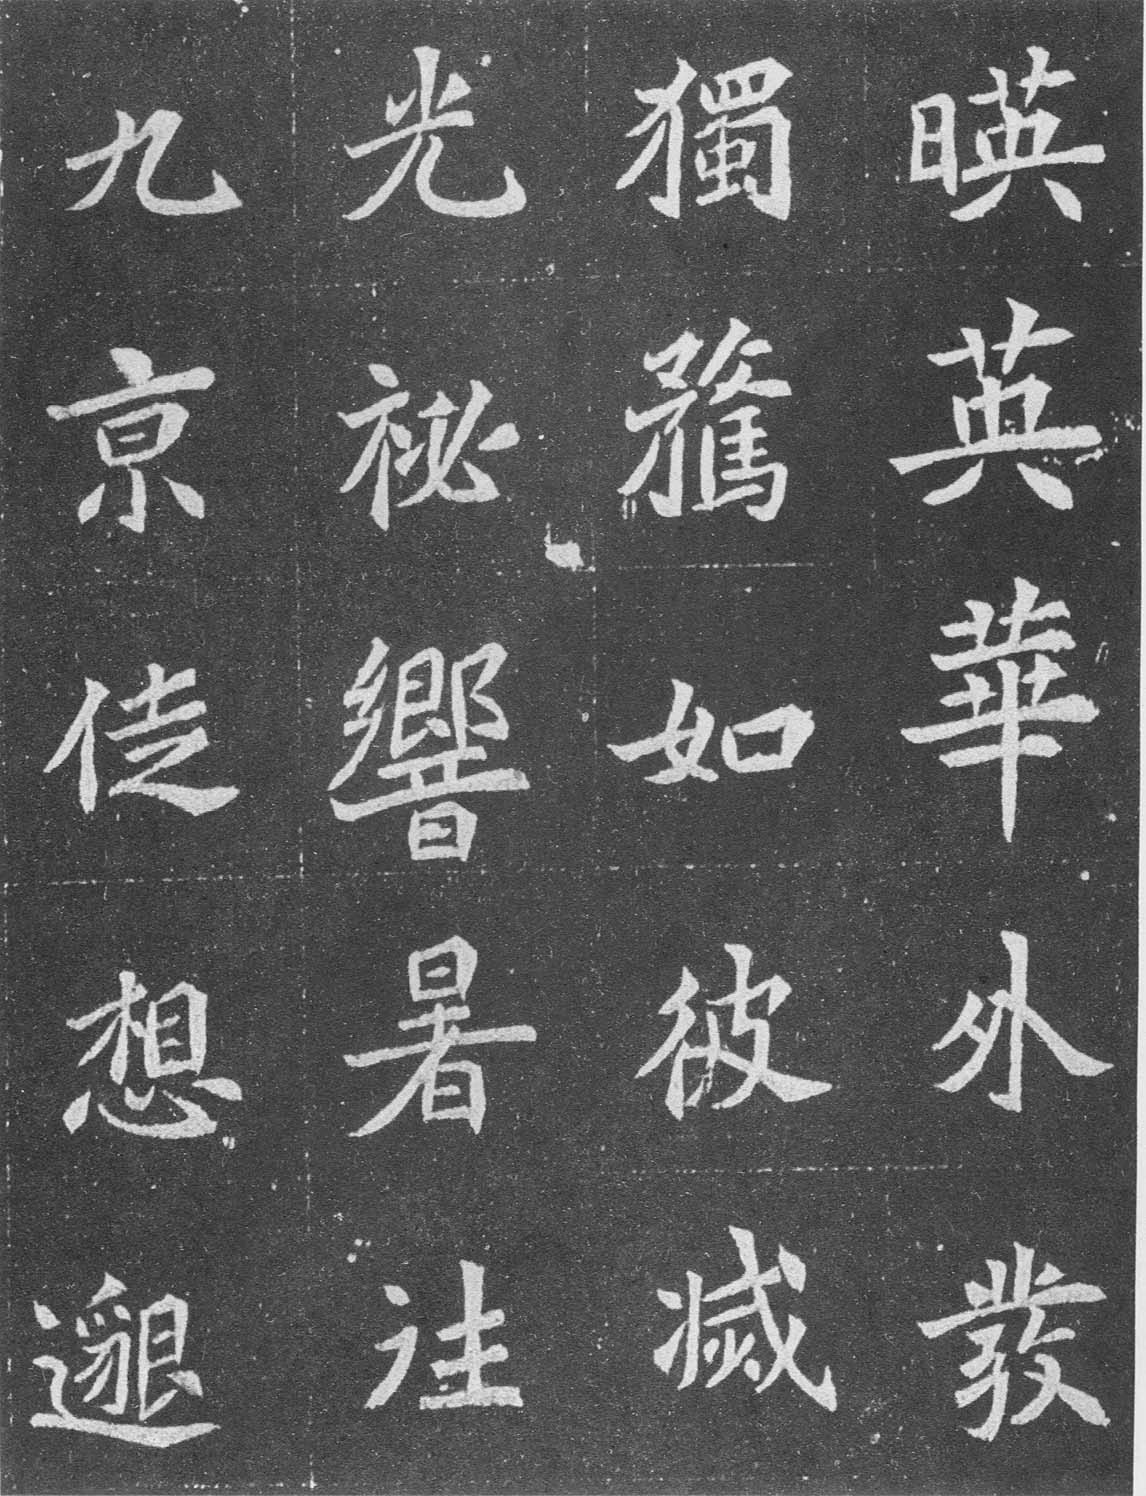 暎英華外發
獨騖如彼滅
光祕響暑往
九京徒想邈